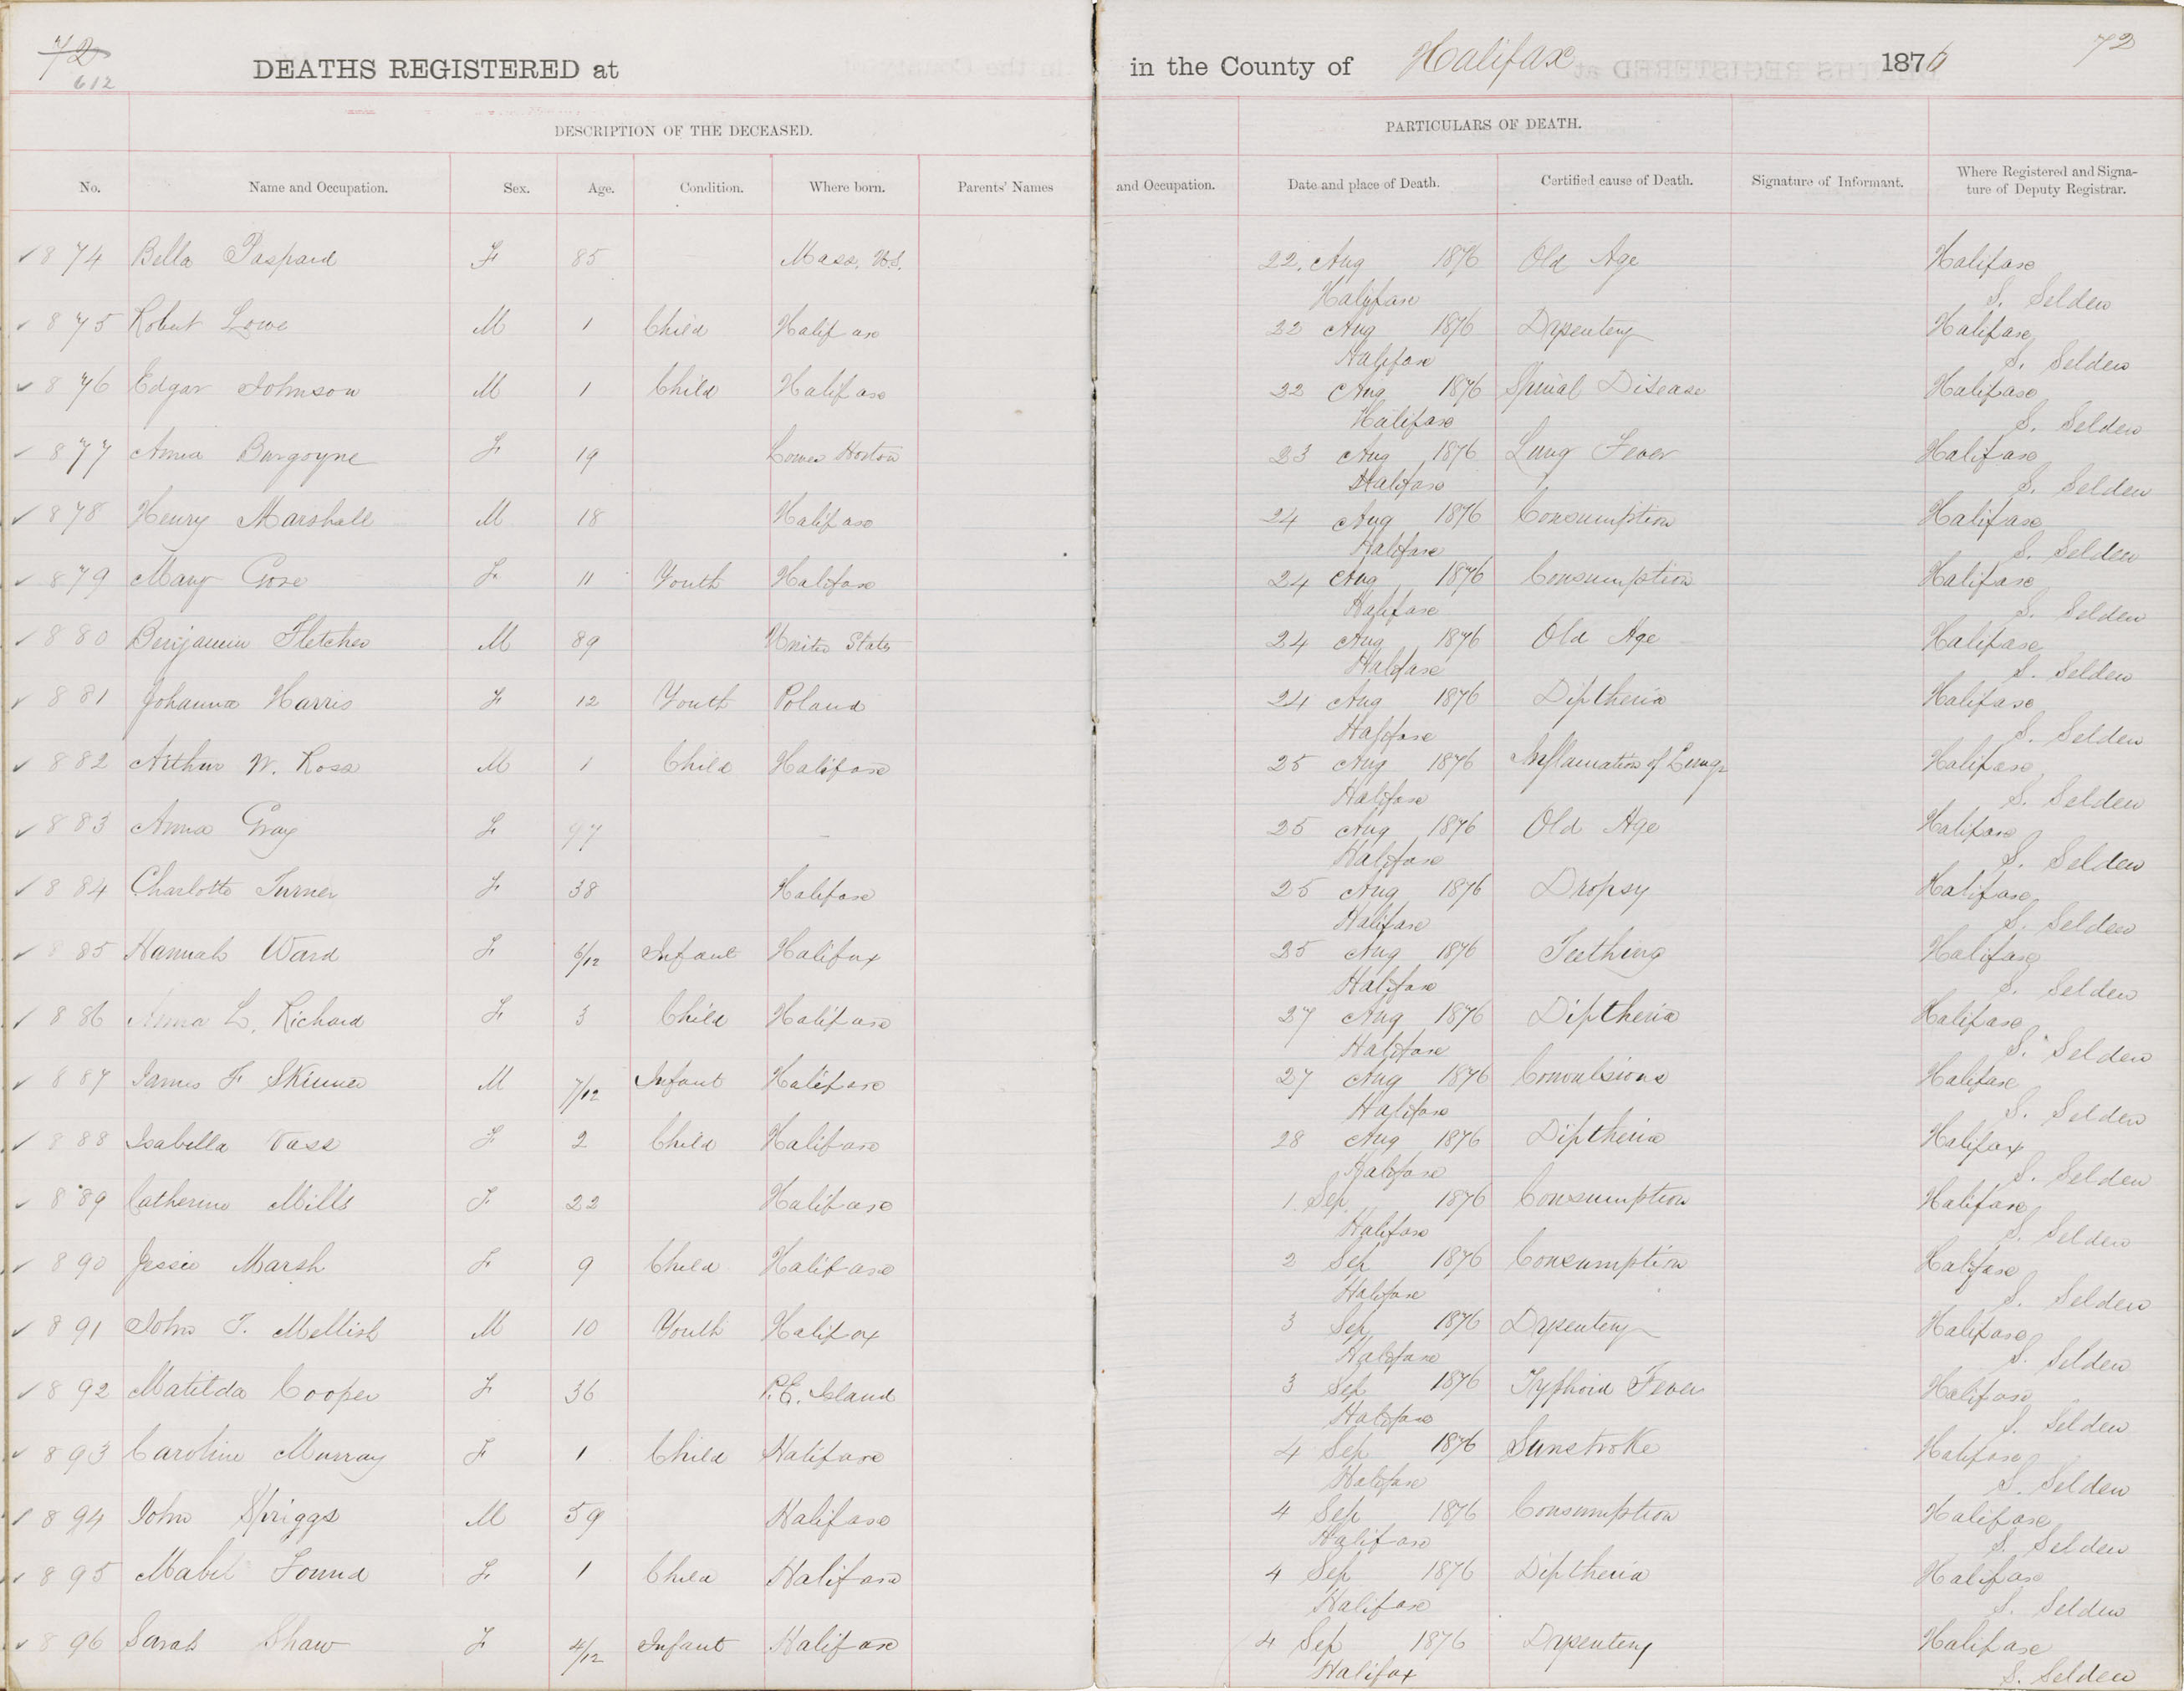 72
612
DEATHS REGISTERED at in the County of Halifax 1876 72
DESCRIPTION OF THE DECEASED. PARTICULARS OF DEATH.
No. Name and Occupation. Sex. Age. Condition. Where born. Parents' Names and Occupation. Date and place of Death. Certified cause of Death. Signature of Informant. Where Registered and Signa-
ture of Deputy Registrar.
874 Bella Paspard F 85 Mass. U.S. 22. Aug 1876 Old Age Halifax
Halifax S. Selden
875 Robert Lowe M 1 Child Halifax 22 Aug 1876 Dysentery Halifax
Halifax S. Selden
876 Edgar Johnson M 1 Child Halifax 22 Aug 1876 Spinal Disease Halifax
Halifax S. Selden
877 Anna Burgoyne F 19 Lower Horton 23 Aug 1876 Lung Fever Halifax
Halifax S. Selden
878 Henry Marshall M 18 Halifax 24 Aug 1876 Consumption Halifax
Halifax S. Selden
879 Mary Gore F 11 Youth Halifax 24 Aug 1876 Consumption Halifax
Halifax S. Selden
880 Benjamin Fletcher M 89 United States 24 Aug 1876 Old Age Halifax
Halifax S. Selden
881 Johanna Harris F 12 Youth Poland 24 Aug 1876 Diptheria Halifax
Halifax S. Selden
882 Arthur W. Ross M 1 Child Halifax 25 Aug 1876 Inflamation of Lungs Halifax
Halifax S. Selden
883 Anna Gray F 97 — 25 Aug 1876 Old Age Halifax
Halifax S. Selden
884 Charlotte Turner F 38 Halifax 25 Aug 1876 Dropsy Halifax
Halifax S. Selden
885 Hannah Ward F 6/12 Infant Halifax 25 Aug 1876 Teething Halifax
Halifax S. Selden
886 Anna L. Richard F 3 Child Halifax 27 Aug 1876 Diptheria Halifax
Halifax S. Selden
887 James F Skinner M 7/12 Infant Halifax 27 Aug 1876 Convulsions Halifax
Halifax S. Selden
888 Isabella Vass F 2 Child Halifax 28 Aug 1876 Diptheria Halifax
Halifax S. Selden
889 Catherine Mills F 22 Halifax 1. Sep 1876 Consumption Halifax
Halifax S. Selden
890 Jessie Marsh F 9 Child Halifax 2 Sep 1876 Consumption Halifax
Halifax S. Selden
891 John T. Mellish M 10 Youth Halifax 3 Sep 1876 Dysentery Halifax
Halifax S. Selden
892 Matilda Cooper F 36 P.E. Island 3 Sep 1876 Typhoid Fever Halifax
Halifax S. Selden
893 Caroline Murray F 1 Child Halifax 4 Sep 1876 Sunstroke Halifax
Halifax S. Selden
894 John Spriggs M 59 Halifax 4 Sep 1876 Consumption Halifax
Halifax S. Selden
895 Mabel Found F 1 Child Halifax 4 Sep 1876 Diptheria Halifax
Halifax S. Selden
896 Sarah Shaw F 4/12 Infant Halifax 4 Sep 1876 Dysentery Halifax
Halifax S. Selden